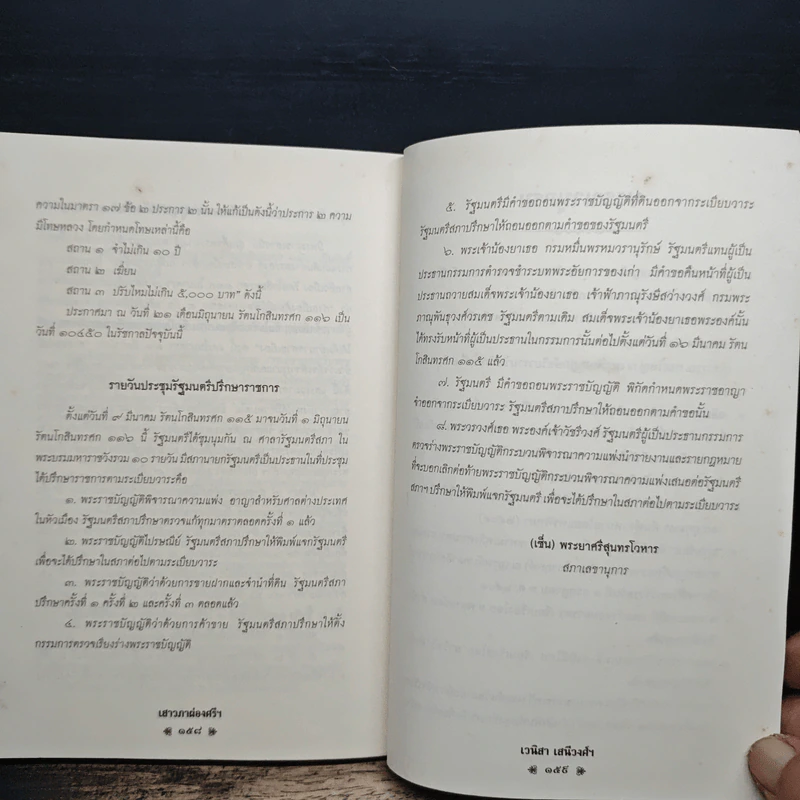 ความในมาตรา ๑๗ ข้อ ๒ ประการ ๒ นั้น ให้แก้เป็นดังนี้ว่าประการ ๒ ความ
มีโทษหลวง โดยกำหนดโทษเหล่านี้คือ
สถาน ๑ จำไม่เกิน ๑๐ ปี
สถาน ๒ เฆี่ยน
สถาน ๓ ปรับไหมไม่เกิน ๕,๐๐๐ บาท" ดังนี้
ประกาศมา ณ วันที่ ๒๑ เดือนมิถุนายน รัตนโกสินทรศก ๑๑๖ เป็น
วันที่ ๑๐๔๕๐ ในรัชกาลปัจจุบันนี้
รายวันประชุมรัฐมนตรีปรึกษาราชการ
ตั้งแต่วันที่ ๙ มีนาคม รัตนโกสินทรศก ๑๑๕ มาจนวันที่ ๑ มิถุนายน
รัตนโกสินทรศก ๑๑๖ นี้ รัฐมนตรีได้ชุมนุมกัน ณ ศาลารัฐมนตรีสภา ใน
พระบรมมหาราชวังรวม ๑๐ รายวัน มีสภานายกรัฐมนตรีเป็นประธานในที่ประชุม
ได้ปรึกษาราชการตามระเบียบวาระคือ
๑. พระราชบัญญัติพิจารณาความแพ่ง อาญาสำหรับศาลต่างประเทศ
ในหัวเมือง รัฐมนตรีสภาปรึกษาตรวจแก้ทุกมาตราตลอดครั้งที่ ๑ แล้ว
๒. พระราชบัญญัติไปรษณีย์ รัฐมนตรีสภาปรึกษาให้พิมพ์แจกรัฐมนตรี
เพื่อจะได้ปรึกษาในสภาต่อไปตามระเบียบวาระ
๓. พระราชบัญญัติว่าด้วยการขายฝากและจำนำที่ดิน รัฐมนตรีสภา
ปรึกษาครั้งที่ ๑ ครั้งที่ ๒ และครั้งที่ ๓ ตลอดแล้ว
๔. พระราชบัญญัติว่าด้วยการค้าขาย รัฐมนตรีสภาปรึกษาให้ตั้ง
กรรมการตรวจเรียงร่างพระราชบัญญัติ
เสาวภาผ่องศรีฯ
๑๕๘
๕. รัฐมนตรีมีคำขอถอนพระราชบัญญัติที่ดินออกจากระเบียบวาระ
รัฐมนตรีสภาปรึกษาให้ถอนออกตามคำขอของรัฐมนตรี
๖. พระเจ้าน้องยาเธอ กรมหมื่นพรหมวรานุรักษ์ รัฐมนตรีแทนผู้เป็น
ประธานกรรมการตำรวจชำระบทพระอัยการของเก่า มีคำขอคืนหน้าที่ผู้เป็น
ประธานถวายสมเด็จพระเจ้าน้องยาเธอ เจ้าฟ้าภาณุรังษีสว่างวงศ์ กรมพระ
ภาณุพันธุวงศ์วรเดช รัฐมนตรีตามเดิม สมเด็จพระเจ้าน้องยาเธอพระองค์นั้น
ได้ทรงรับหน้าที่ผู้เป็นประธานในกรรมการนั้นต่อไปตั้งแต่วันที่ ๑๖ มีนาคม รัตน
โกสินทรศก ๑๑๕ แล้ว
๗. รัฐมนตรี มีคำขอถอนพระราชบัญญัติ พิกัดกำหนดพระราชอาญา
จำออกจากระเบียบวาระ รัฐมนตรีสภาปรึกษาให้ถอนออกตามคำขอนั้น
๘. พระวรวงศ์เธอ พระองค์เจ้าวัชรีวงศ์ รัฐมนตรีผู้เป็นประธานกรรมการ
ตรวจร่างพระราชบัญญัติกระบวนพิจารณาความแพ่งนำรายงานและรายกฎหมาย
ที่จะบอกเลิกต่อท้ายพระราชบัญญัติกระบวนพิจารณาความแพ่งเสนอต่อรัฐมนตรี
สภาฯ ปรึกษาให้พิมพ์แจกรัฐมนตรี เพื่อจะได้ปรึกษาในสภาต่อไปตามระเบียบวาระ
(เซ็น) พระยาศรีสุนทรโวหาร
สภาเลขานุการ
เวนิสา เสนีวงศ์ฯ
๑๕๙